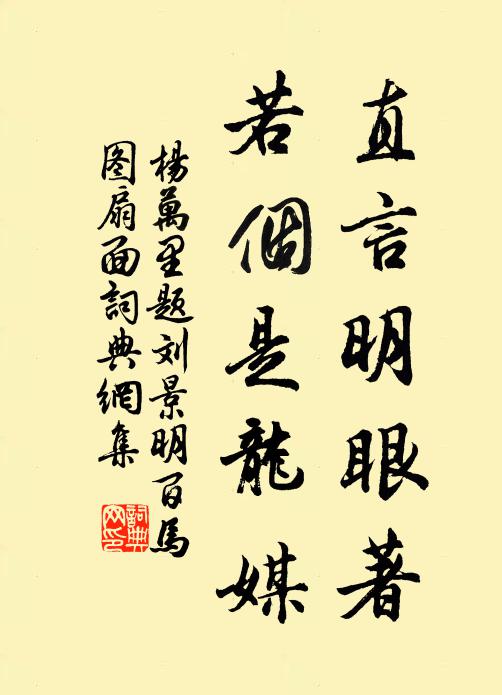 直言明眼著
若個是龍媒
楊萬里题刘景明百馬
图扇面詞典網集
詞典
网印